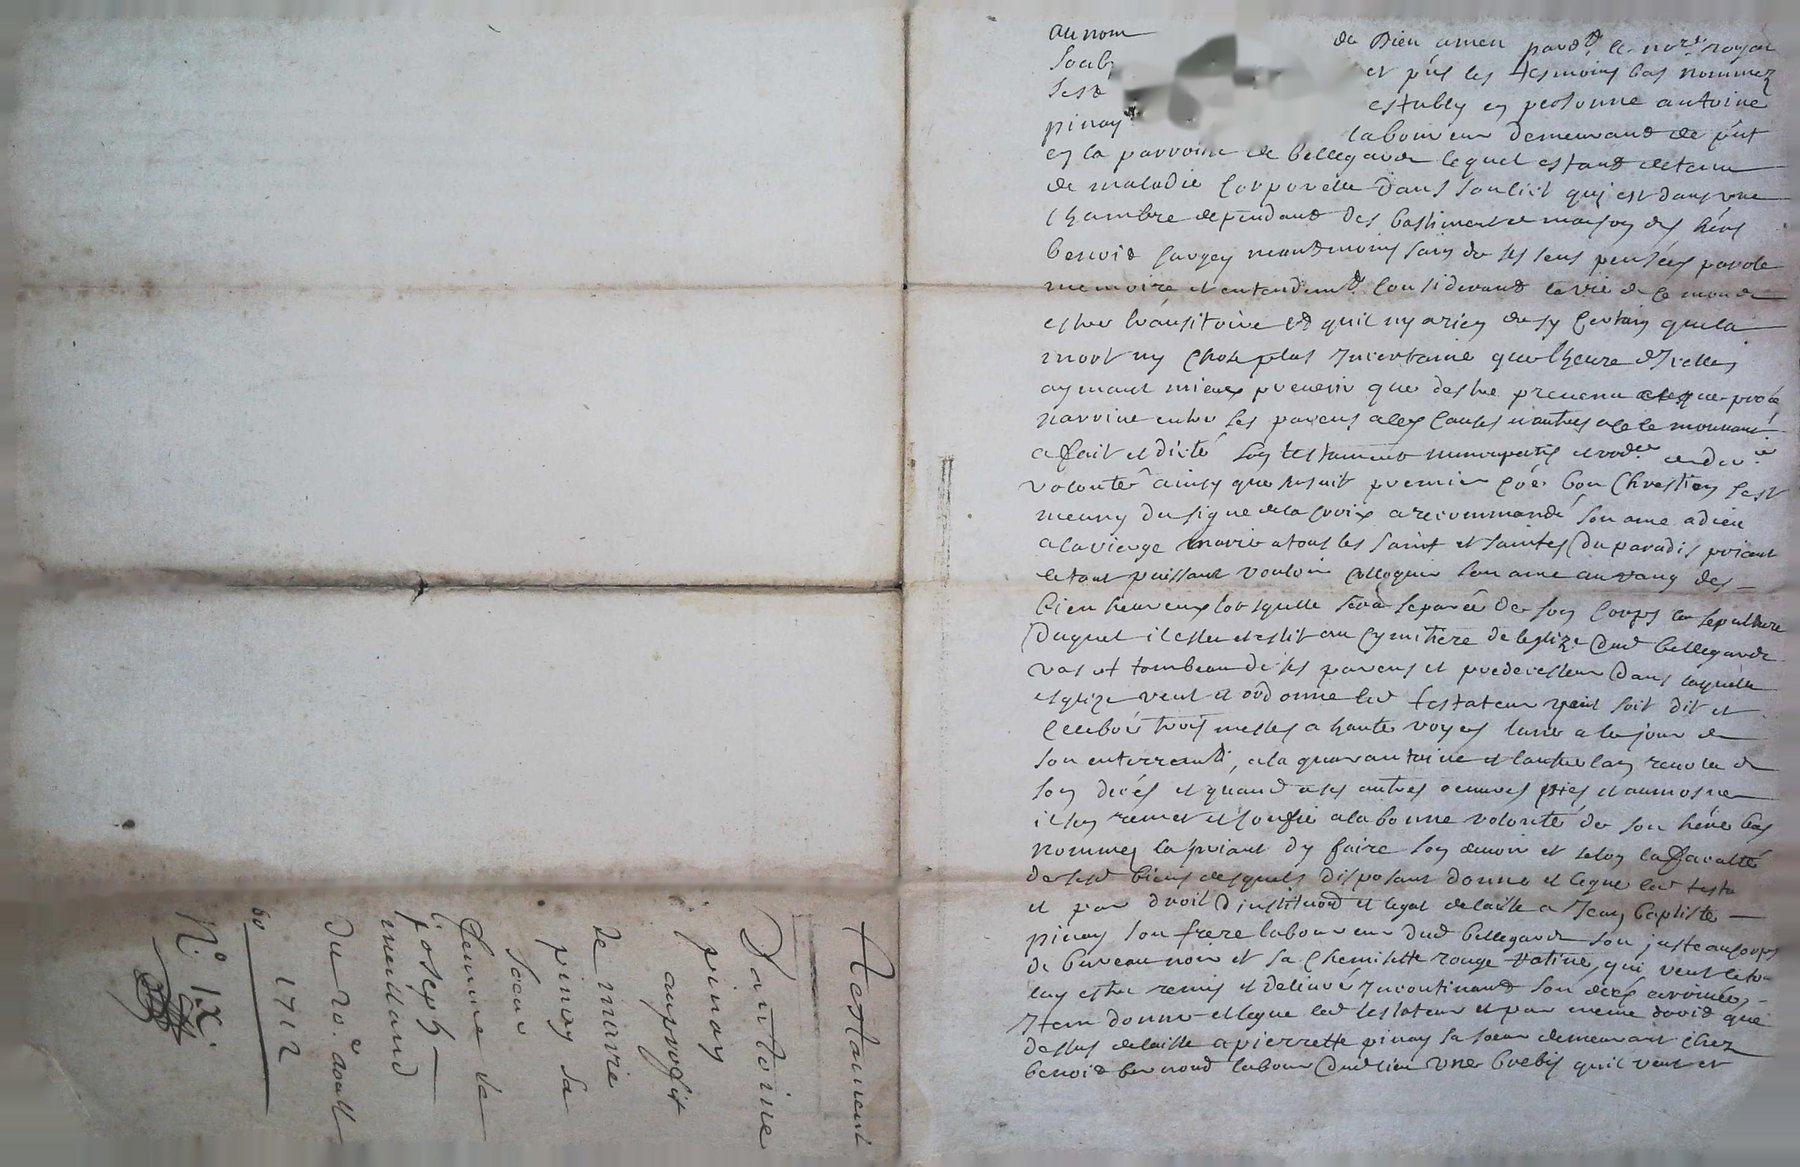 au nom de Dieu amen pard.t le no.re royal
soub et p'ns les tesmoins bas nommez
estably en personne antoine
pinay laboureur demeurant de p'nt
en la parroisse de bellegarde lequel estant detenu
de maladie corporelle dans son lict qui est dans une
chambre dependant des bastiment et maison des hérs
benoist neantmoins sain de ses sens pensées parole
memoire et entendem.t considerant la vie de ce monde
estre transitoire et quil ny a rien de sy certain que la
mort ny chose plus incertaine que lheure dicelle
aymant mieux prevenir que destre prevenu que procé
narrive entre ses parens a les causes
a fait et dicté son testament nuncupatif et
volonté ainsy que sensuit premier co'e bon Chrestien sest
meuny du signe de la croix a recommandé son ame a dieu
a la vierge marie a tous les saint et saintes du paradis priant
le tout puissant vouloir colloquer son ame au rang des
bien heureux lorsquelle sera separée de son corps la sepulture
duquel il eslit au cymitiere de leglize dud bellegarde
vas et tombeau de ses parens et predecesseur dans laquelle
esglize veut et ordonne led testateur soit dit et
celebré trois messes a haute voyes lune a le jour de
son enterrem.t, a la quarantaine et lautre lan revolu de
son décés et quand a ses autres oeuvres pies et aumosne
il sen remet et confie a la bonne volonté de son héré bas
nommez la priant dy faire son devoir et selon la faculté
de sesd biens desquels disposant donne et legue led testa
et par droit d'institu'on et legat delaisse a Jean baptiste
pinay son frere laboureur dud bellegarde son juste au corps
de bureau noir et sa chemisette rouge ratine, qui veut
luy estre remis et delivré incontinant son décés arrivée
Item donne et legue led testateur et par meme droit que
dessus delaisse a pierrette pinay sa soeur demeurant chez
benoist labour dud lieu une brebis quil veut et
Testament
D'antoine
pinay
au proffit
de marie
pinay sa
soeur
femme de
joseph
meilland
du 20.e aoust
1712
60
N.o 1X.